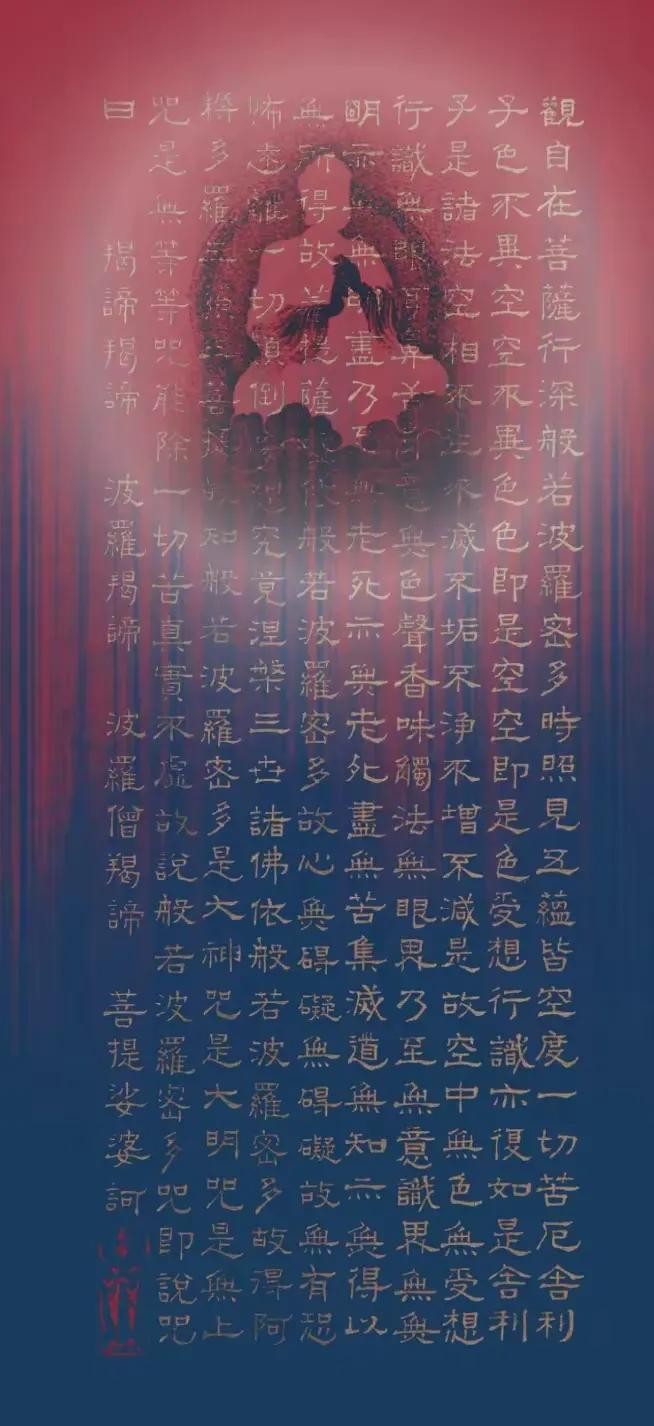 觀自在菩薩行深般若波羅密多時照見五蘊皆空度一切苦厄舍利
子色不異空空不異色色即是空空即是色受想行識亦復如是舍利
子是諸法空相不生不滅不垢不淨不增不減是故空中無色無受想
行識無眼耳鼻舌身意無色聲香味觸法無眼界乃至無意識界無無
明亦無無明盡乃至無老死亦無老死盡無苦集滅道無知亦無得以
無所得故菩提薩埵依般若波羅密多故心無碍礙無碍礙故無有恐
怖遠離一切顛倒夢想究竟涅槃三世諸佛依般若波羅密多故得阿
耨多羅三藐三菩提故知般若波羅密多是大神咒是大明咒是無上
咒是無等等咒能除一切苦真實不虛故說般若波羅密多咒即說咒
曰 揭諦羯諦 波羅羯諦 波羅僧羯諦 菩提娑婆訶